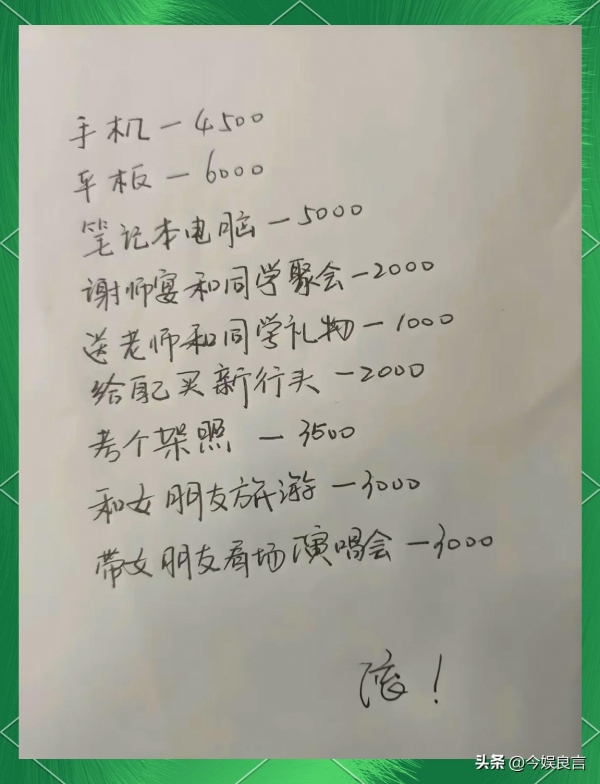 手机－4500
平板－6000
笔记本电脑－5000
谢师宴和同学聚会－2000
送老师和同学礼物－1000
给自己买新行头－2000
考个驾照－3500
和女朋友旅游－3000
带女朋友看场演唱会－3000
头条@今娱良言